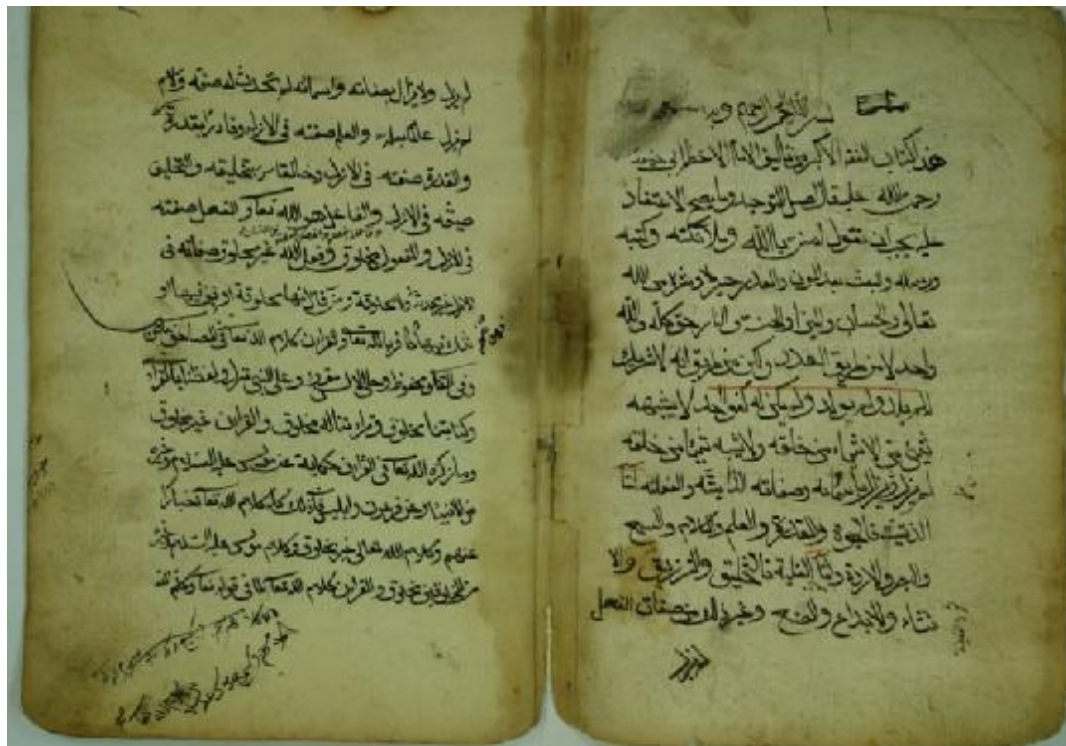 بسم الله الرحمن الرحيم وبه
هذا كتاب الفقه الاكبر من تأليف الامام الاعظم ابي حنيفة
رحمة الله عليه قال اصل التوحيد وما يصح الاعتقاد
عليه يجب ان تقول امنت بالله وملائكته وكتبه
ورسله والبعث بعد الموت والقدر خيره وشره من الله
تعالى والحساب والميزان والجنة والنار حق كله والله
واحد لا من طريق العدد ولكن من طريق انه لا شريك له
لم يلد ولم يولد ولم يكن له كفوا احد لا يشبهه
شيئ من الاشياء من خلقه ولا يشبه شيئا من خلقه
لم يزل ولا يزال باسمائه وصفاته الذاتية والفعلية اما
الذاتية فالحيوة والقدرة والعلم والكلام والسمع
والبصر والارادة واما الفعلية فالتخليق والترزيق والا
نشاء والابداع والصنع وغير ذلك من صفات الفعل
لم يزل
لم يزل ولا يزال بصفاته واسمائه لم تحدث له صفة ولا اسم
لم يزل عالما بعلمه والعلم صفته في الازل وقادرا بقدرة
والقدرة صفته في الازل وخالقا بتخليقه والتخليق
صفته في الازل والفاعل هو الله تعا والفعل صفته
في الازل والمفعول مخلوق وفعل الله غير مخلوق وصفاته في
الازل غير محدثة ولا مخلوقة ومن قال انها مخلوقة او وقف فيها او
شك فيها فهو كافر بالله تعا والقران كلام الله تعا في المصاحف مكتوب
وفي القلوب محفوظ وعلى الالسن مقرو وعلى النبي منزل ولفظنا بالقران
وكتابتنا مخلوق وقراءتنا له مخلوق والقران غير مخلوق
وما ذكره الله تعا في القران حكاية عن موسى عليه السلام وغيره
من الانبياء وعن فرعون وابليس فان ذلك كله كلام الله تعا اخبارا
عنهم وكلام الله تعالى غير مخلوق وكلام موسى عليه السلام وغيره
من المخلوقين مخلوق والقران كلام الله تعا كما في قوله تعا وكلم الله